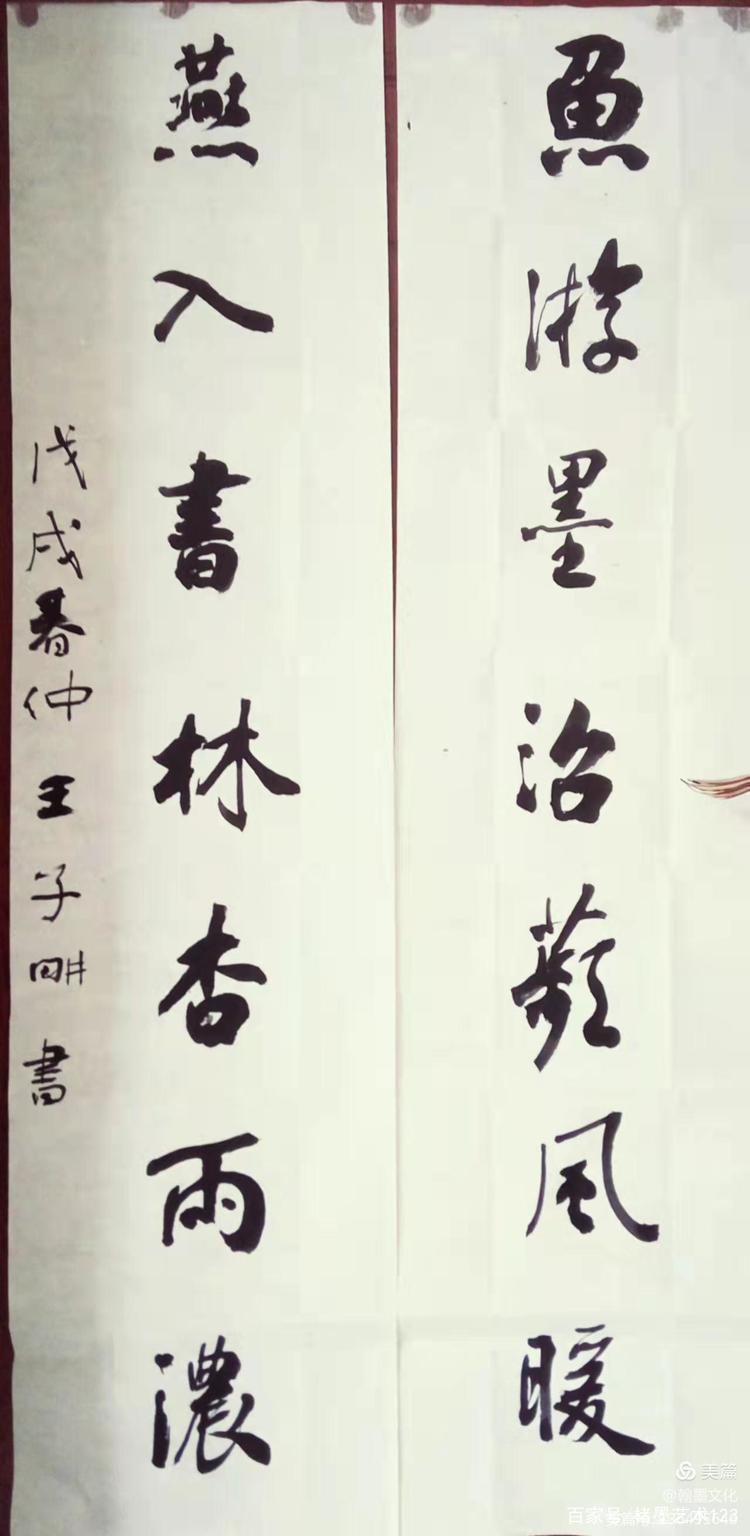 魚游墨沼蘋風暖
燕入書林杏雨濃
戊戌春仲王子畊書
美篇
@翰墨文化
百家号
墨艺术123